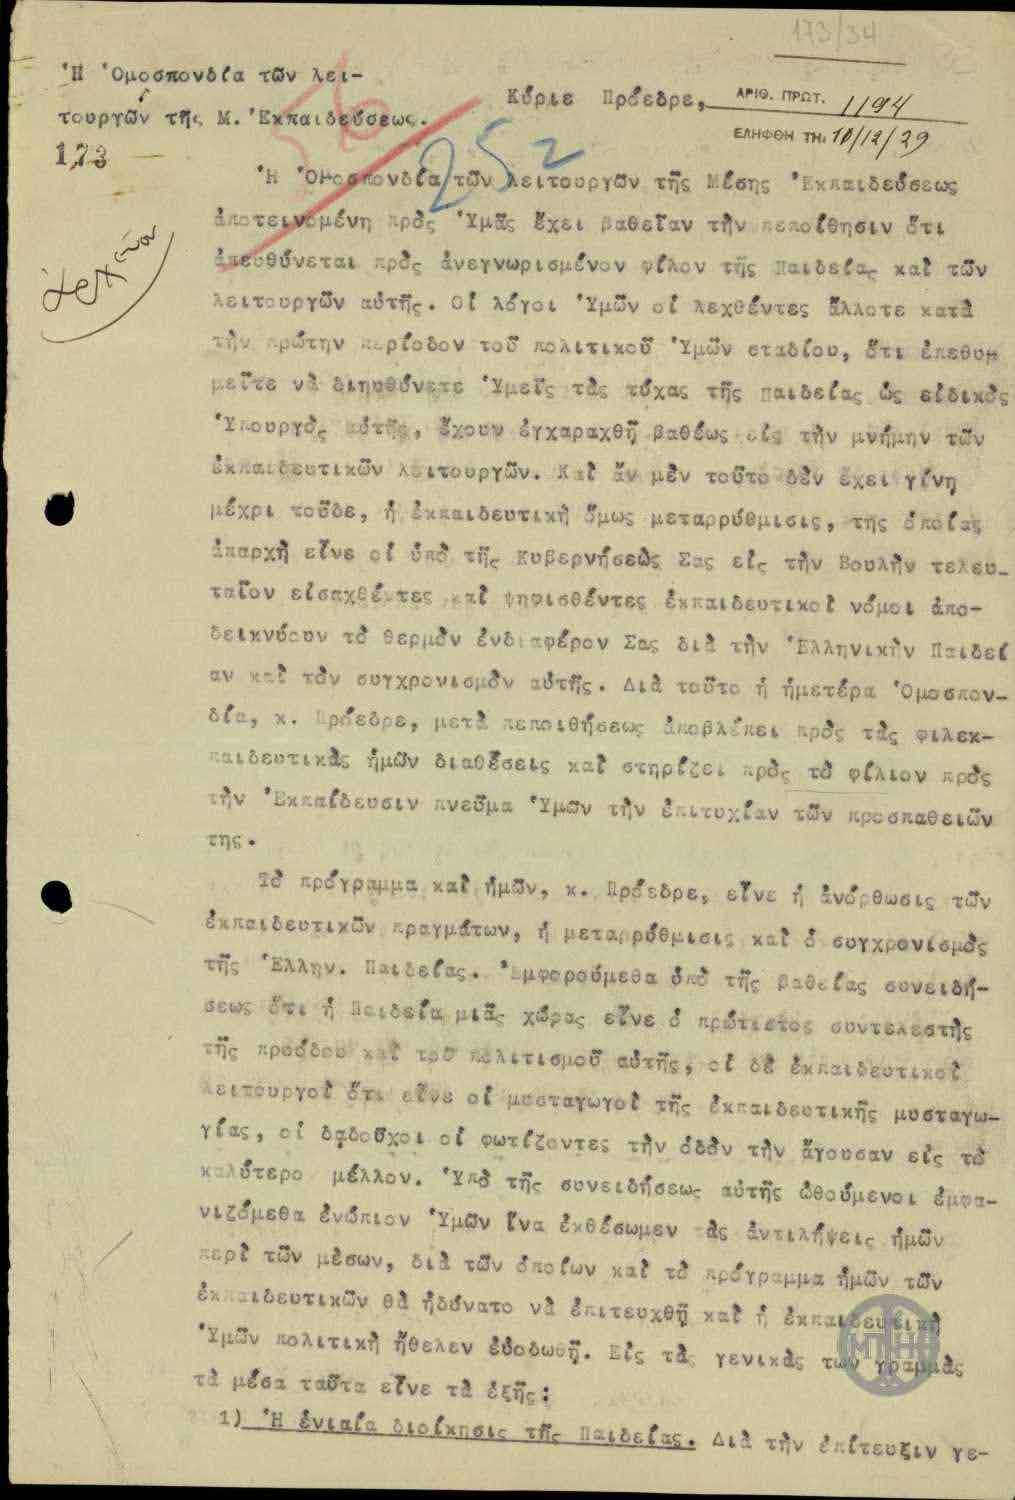 173/34
Ἡ Ὁμοσπονδία τῶν λει-
τουργῶν τῆς Μ. Ἐκπαιδεύσεως.
173
Κύριε Πρόεδρε,
ΑΡΙΘ. ΠΡΩΤ. 1194
ΕΛΗΦΘΗ ΤΗ. 10/12/29
252
Ἡ Ὁμοσπονδία τῶν λειτουργῶν τῆς Μέσης Ἐκπαιδεύσεως
ἀποτεινομένη πρὸς Ὑμᾶς ἔχει βαθεῖαν τὴν πεποίθησιν ὅτι
ἀπευθύνεται πρὸς ἀνεγνωρισμένον φίλον τῆς Παιδείας καὶ τῶν
λειτουργῶν αὐτῆς. Οἱ λόγοι Ὑμῶν οἱ λεχθέντες ἄλλοτε κατὰ
τὴν πρώτην περίοδον τοῦ πολιτικοῦ Ὑμῶν σταδίου, ὅτι ἐπεθυμ
μεῖτε νὰ διηυθύνετε Ὑμεῖς τὰς τύχας τῆς παιδείας ὡς εἰδικὸς
Ὑπουργὸς αὐτῆς, ἔχουν ἐγχαραχθῆ βαθέως εἰς τὴν μνήμην τῶν
ἐκπαιδευτικῶν λειτουργῶν. Καὶ ἄν μὲν τοῦτο δὲν ἔχει γίνῃ
μέχρι τοῦδε, ἡ ἐκπαιδευτικὴ ὅμως μεταρρύθμισις, τῆς ὁποίας
ἀπαρχὴ εἶνε οἱ ὑπὸ τῆς Κυβερνήσεώς Σας εἰς τὴν Βουλὴν τελευ-
ταῖον εἰσαχθέντες καὶ ψηφισθέντες ἐκπαιδευτικοὶ νόμοι ἀπο-
δεικνύουν τὸ θερμὸν ἐνδιαφέρον Σας διὰ τὴν Ἑλληνικὴν Παιδεί
αν καὶ τὸν συγχρονισμὸν αὐτῆς. Διὰ τοῦτο ἡ ἡμετέρα Ὁμοσπον-
δία, κ. Πρόεδρε, μετὰ πεποιθήσεως ἀποβλέπει πρὸς τὰς φιλεκ-
παιδευτικὰς ἡμῶν διαθέσεις καὶ στηρίζει πρὸς τὸ φίλιον πρὸς
τὴν Ἐκπαίδευσιν πνεῦμα Ὑμῶν τὴν ἐπιτυχίαν τῶν προσπαθειῶν
της.
Τὸ πρόγραμμα καὶ ἡμῶν, κ. Πρόεδρε, εἶνε ἡ ἀνόρθωσις τῶν
ἐκπαιδευτικῶν πραγμάτων, ἡ μεταρρύθμισις καὶ ὁ συγχρονισμὸς
τῆς Ἑλλην. Παιδείας. Ἐμφορούμεθα ὑπὸ τῆς βαθείας συνειδή-
σεως ὅτι ἡ Παιδεία μιᾶς χώρας εἶνε ὁ πρώτιστος συντελεστὴς
τῆς προόδου καὶ τοῦ πολιτισμοῦ αὐτῆς, οἱ δὲ ἐκπαιδευτικοὶ
λειτουργοὶ ὅτι εἶνε οἱ μυσταγωγοὶ τῆς ἐκπαιδευτικῆς μυσταγω-
γίας, οἱ δᾳδοῦχοι οἱ φωτίζοντες τὴν ὁδὸν τὴν ἄγουσαν εἰς τὸ
καλύτερο μέλλον. Ὑπὸ τῆς συνειδήσεως αὐτῆς ὠθούμενοι ἐμφα-
νιζόμεθα ἐνώπιον Ὑμῶν ἵνα ἐκθέσωμεν τὰς ἀντιλήψεις ἡμῶν
περὶ τῶν μέσων, διὰ τῶν ὁποίων καὶ τὸ πρόγραμμα ἡμῶν τῶν
ἐκπαιδευτικῶν θὰ ἠδύνατο νὰ ἐπιτευχθῇ καὶ ἡ ἐκπαιδευτικὴ
Ὑμῶν πολιτικὴ ἤθελεν εὐοδωθῇ. Εἰς τὰς γενικὰς των γραμμὰς
τὰ μέσα ταῦτα εἶνε τὰ ἑξῆς:
1) Ἡ ἑνιαία διοίκησις τῆς Παιδείας. Διὰ τὴν ἐπίτευξιν γε-